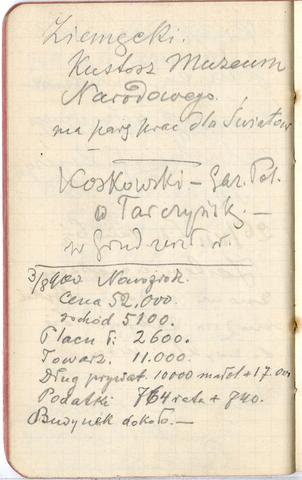 Ziemęcki.
Kustosz Muzeum
Narodowego.
ma parę prac dla Światow
Koskowski – Gaz. Pol.
Tarczyńsk. –
w
3/8900 Nawrock.
Cena 52.000.
dochód 5100.
Placu ł: 2600.
Towarz. 11.000.
Dług prywat. 10000 małol + 17.000
Podatki 764 rata + 840.
Budynek dokoło. –